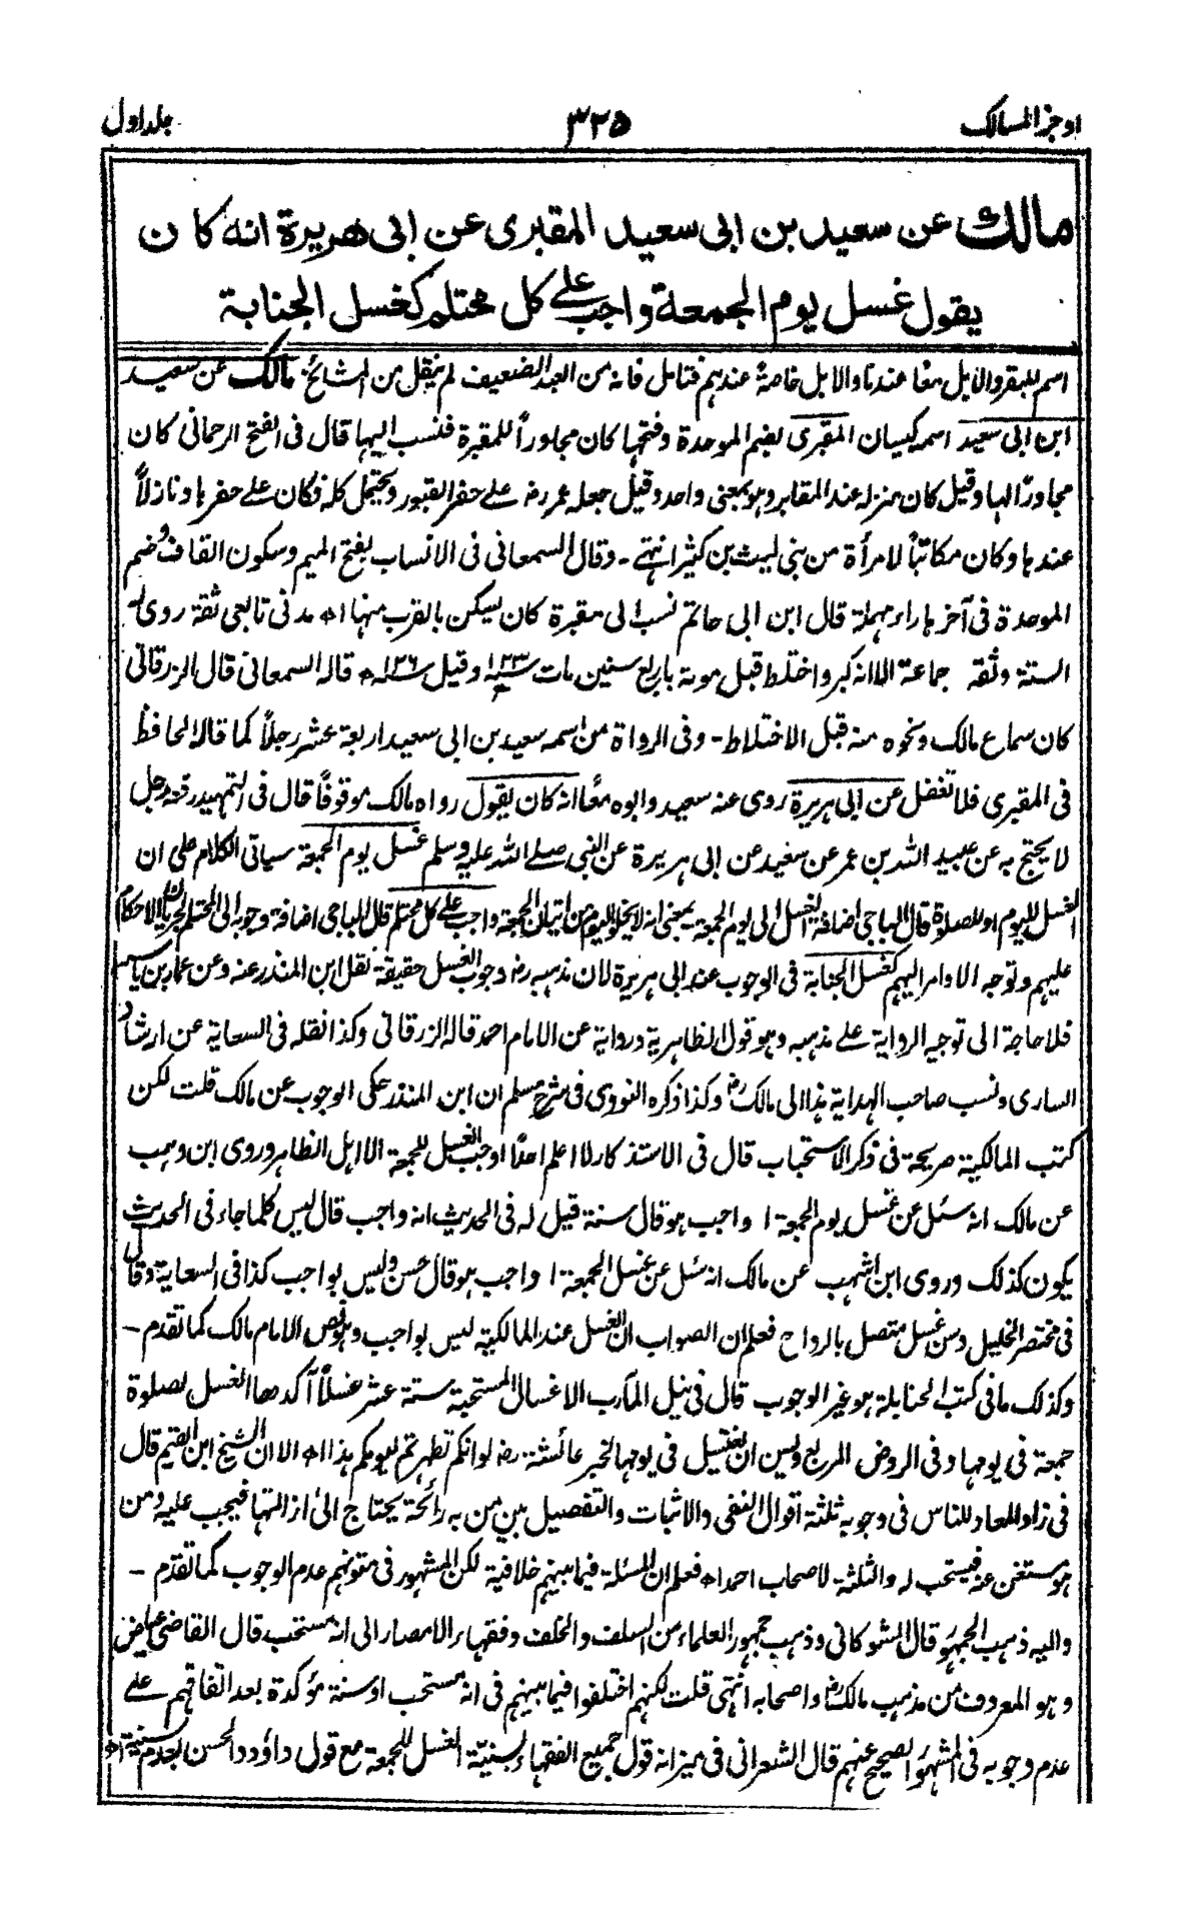 اوجز المسالک ۳۲۵ جلد اول
مالك عن سعيد بن ابى سعيد المقبرى عن ابى هريرة انه كان
يقول غسل يوم الجمعة واجب على كل محتلم كغسل الجنابة
اسم للبقر والابل معا عندنا والابل خاصة عندهم فتامل فانه من العبد الضعيف لم ينقل من المشائخ مالك عن سعيد
ابن ابى سعيد اسمه كيسان المقبرى بضم الموحدة وفتحها كان مجاوراً للمقبرة فنسب اليها قال فى الفتح الرحمانى كان
مجاورًا لها وقيل كان منزله عند المقابر وهو بمعنى واحد وقيل جعله عمر رض على حفر القبور ويحتمل كله فكان على حفرها و نازلاً
عندها وكان مكاتباً لامرأة من بنى ليث بن كثير انتهى - وقال السمعانى فى الانساب بفتح الميم وسكون القاف وضم
الموحدة فى آخرها راء مهملة قال ابن ابى حاتم نسب الى مقبرة كان يسكن بالقرب منها اه مدنى تابعى ثقة روى له
الستة وثقه جماعة الا انه كبر واختلط قبل موته باربع سنين مات سنة ۱۲۳ وقيل سنة ۱۲۶ه قاله السمعانى قال الزرقانى
كان سماع مالك ونحوه منه قبل الاختلاط - وفى الرواة من اسمه سعيد بن ابى سعيد اربعة عشر رجلاً كما قاله الحافظ
فى المقبرى فلا تغفل عن ابى هريرة روى عنه سعيد وابوه معًا انه كان يقول رواه مالك موقوفاً قال فى التمهيد رفعه رجل
لا يحتج به عن عبيد الله بن عمر عن سعيد عن ابى هريرة عن النبى صلى الله عليه وسلم غسل يوم الجمعة سياتى الكلام على ان
الغسل لليوم او للصلوة قال الباجى اضافة الغسل الى يوم الجمعة بمعنى انه لا يخلو اليوم من اتيان الجمعة واجب على كل محتلم قال الباجى اضافة وجوبه الى المحتلم لجريان الاحكام
عليهم وتوجه الاوامر اليهم كغسل الجنابة فى الوجوب عند ابى هريرة لان مذهبه رض وجوب الغسل حقيقة نقل ابن المنذر عنه وعن عمار بن ياسر
فلا حاجة الى توجيه الرواية على مذهبه وهو قول الظاهرية ورواية عن الامام احمد قاله الزرقانى وكذا نقله فى السعاية عن ارشاد
السارى ونسب صاحب الهداية هذا الى مالك رح وكذا ذكره النووى فى شرح مسلم ان ابن المنذر حكى الوجوب عن مالك قلت لكن
كتب المالكية صريحة فى ذكر الاستحباب قال فى الاستذكار لا اعلم احدًا اوجب الغسل للجمعة الا اهل الظاهر وروى ابن وهب
عن مالك انه سئل عن غسل يوم الجمعة ا واجب هو قال سنة قيل له فى الحديث انه واجب قال ليس كلما جاء فى الحديث
يكون كذلك وروى ابن اشهب عن مالك انه سئل عن غسل الجمعة ا واجب هو قال حسن وليس بواجب كذا فى السعاية وقال
فى مختصر الخليل وسن غسل متصل بالرواح فعلم ان الصواب ان الغسل عند المالكية ليس بواجب وهو نص الامام مالك كما تقدم -
وكذلك ما فى كتب الحنابلة هو غير الوجوب قال فى نيل المآرب الاغسال المستحبة ستة عشر غسلاً آكدها الغسل لصلوة
جمعة فى يومها وفى الروض المربع وليسن ان يغتسل فى يومها لخبر عائشة رض لو انكم تطهرتم ليومكم هذا اه الا ان الشيخ ابن القيم قال
فى زاد المعاد للناس فى وجوبه ثلثة اقوال النفى والاثبات والتفصيل بين من به رائحة يحتاج الى ازالتها فيجب عليه ومن
هو مستغن عنه فيستحب له والثلثة لاصحاب احمد اه فعلم ان المسئلة فيما بينهم خلافية لكن المشهور فى متونهم عدم الوجوب كما تقدم -
واليه ذهب الجمهور قال الشوكانى وذهب جمهور العلماء من السلف والخلف وفقهاء الامصار الى انه مستحب قال القاضى عياض
وهو المعروف من مذهب مالك رح واصحابه انتهى قلت لكنهم اختلفوا فيما بينهم فى انه مستحب او سنة مؤكدة بعد اتفاقهم على
عدم وجوبه فى المشهور الصحيح عنهم قال الشعرانى فى ميزانه قول جميع الفقهاء بسنية الغسل للجمعة مع قول داؤد والحسن بعدم سنيته اه